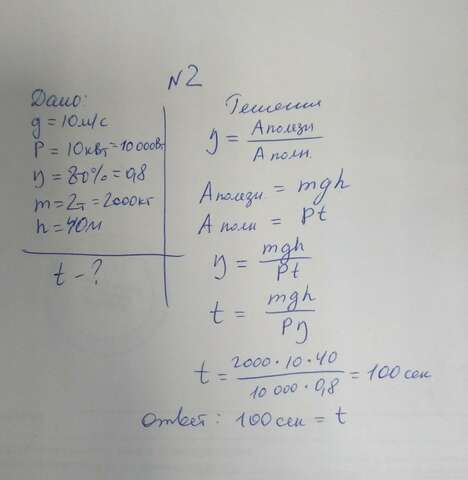 №2
Дано:
g = 10 м/с
P = 10 кВт = 10 000 Вт
η = 80% = 0,8
m = 2т = 2000 кг
h = 40 м
t - ?
Решения
η = A полезн / A полн.
A полезн. = mgh
A полн = Pt
η = mgh / Pt
t = mgh / Pη
t = 2000 · 10 · 40 / 10 000 · 0,8 = 100 сек
Ответ: 100 сек = t